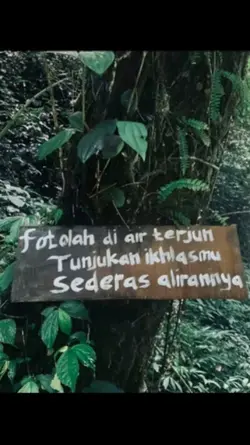 fotolah di air terjun
Tunjukan ikhlasmu
Sederas alirannya